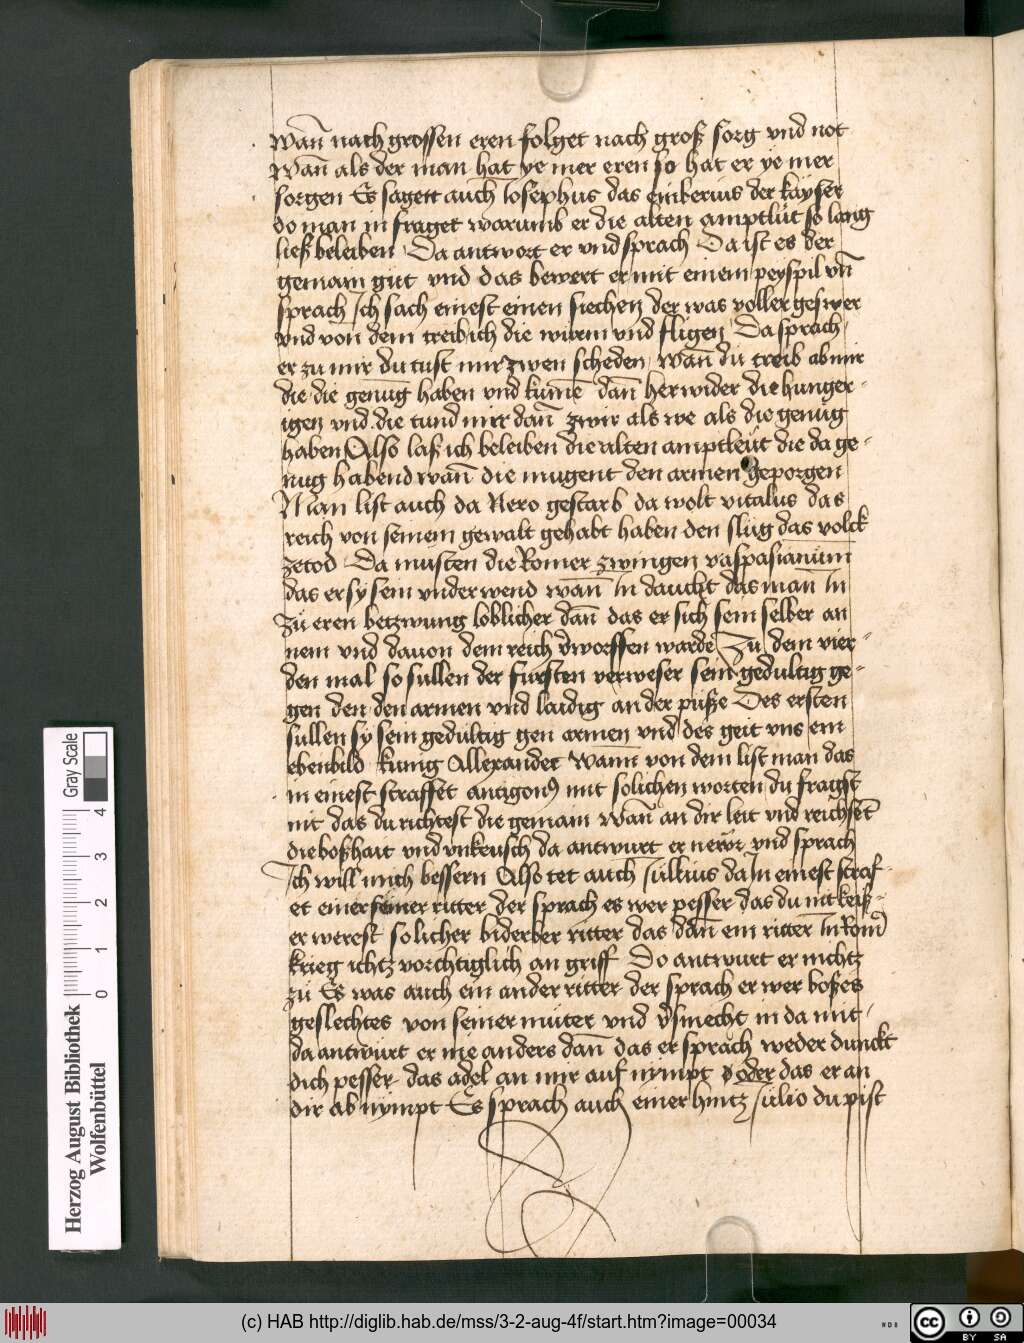 wañ nach grossen eren folget nach groß sorg vnd not
Wañ als der man hat ye mer eren so hat er ye mer
sorgen Es sagett auch Josephus das der kayser
do man in fraget warumb er die alten amptlüt so lang
ließ beleiben Da antwort er vnd sprach Da ist es der
gemain gut vnd das bewert er mit einem peyspil vñ
sprach Ich sach einest einen siechen der was voller geswer
vnd von dem treib ich die würm vnd fligen Da sprach
er zu mir du tust mir zwen scheden / wañ du treib ab mir
die die genüg haben vnd kumē dañ herwider die hunger-
igen vnd die tund mir dañ zwir als we als die genüg
haben Also laß ich beleiben die alten amptleüt die da ge-
nug habend wañ die mugent den armen geporgen
Man list auch da Nero gestarb da wolt vitalus das
reich von seinem gewalt gehabt haben den slüg das volck
zetod Da musten die Romer zwingen vaspasianum
das er sy sein vnderwend wañ In daucht das man In
zü eren betzwung loblicher dañ das er sich sein selber an
nem vnd dauon dem reich v'worffen warde Zu dem vier-
den mal so sullen der fürsten verweser sein gedultig ge-
gen den den armen vnd laidig an der püße Des ersten
sullen sy sein gedültig gen armen vnd des geit vns ein
ebenbild kunig Allexander Wann von dem list man das
in einest straffet antigon9 mit solichen worten du fragst
nit das du richtest die gemain wañ an dir leit vnd reichset
die boßhait vnd vnkeusch da antwurt er vnd sprach
Ich will mich bessern Also tet auch Jullius da In einest straf-
et einer seiner ritter der sprach es wer pesser das du nit keiß-
er werest so licher biderber ritter das dañ ein ritter In Rom
krieg ichtz vorchtiglich an griff Do antwurt er nichtz
zü Es was auch ein ander ritter der sprach er wer boßes
geslechtes von seiner müter vnd v'smecht in da mit-
da antwurt er nie anders dañ das er sprach weder dunckt
dich pesser das adel an mir auf nympt oder das er an
dir ab nympt Es sprach auch einer hintz Julio du pist
Herzog August Bibliothek
Wolfenbüttel
0 1 2 3 4
Gray Scale
(c) HAB http://diglib.hab.de/mss/3-2-aug-4f/start.htm?image=00034
cc BY SA